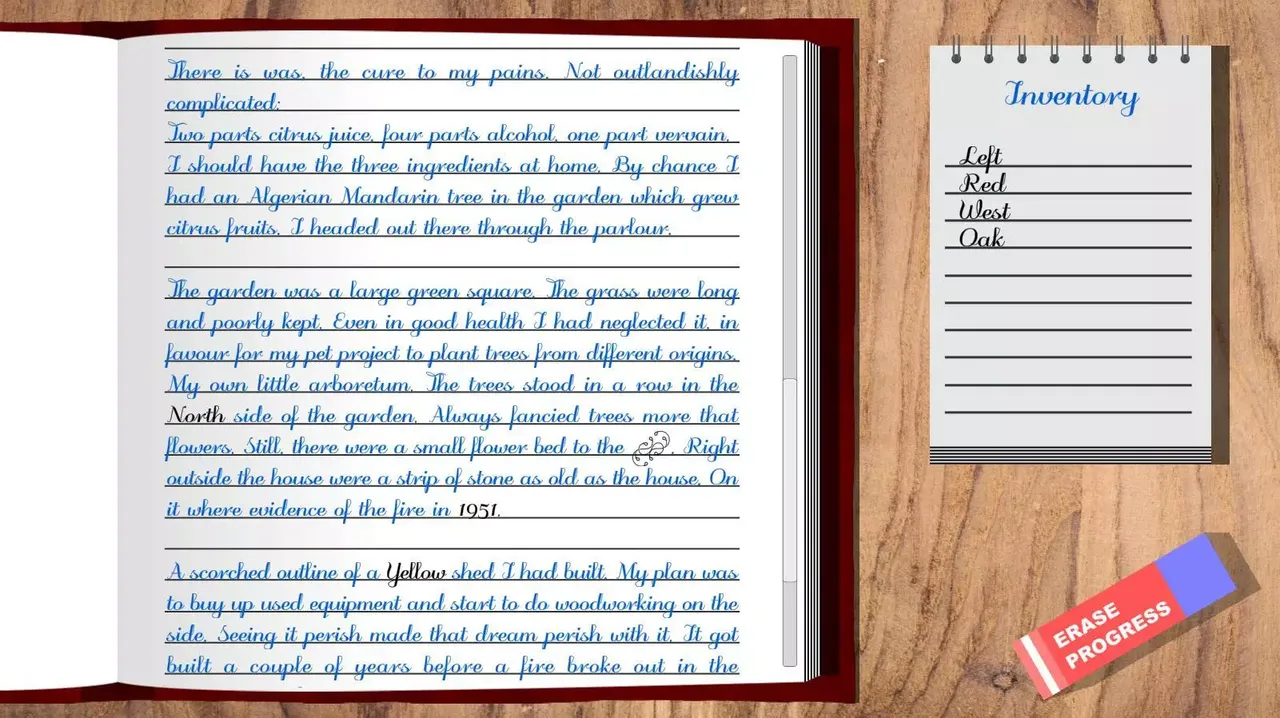 There is was, the cure to my pains. Not outlandishly
complicated:
Two parts citrus juice, four parts alcohol, one part vervain.
I should have the three ingredients at home. By chance I
had an Algerian Mandarin tree in the garden which grew
citrus fruits. I headed out there through the parlour.
The garden was a large green square. The grass were long
and poorly kept. Even in good health I had neglected it, in
favour for my pet project to plant trees from different origins.
My own little arboretum. The trees stood in a row in the
North side of the garden. Always fancied trees more that
flowers. Still, there were a small flower bed to the . Right
outside the house were a strip of stone as old as the house. On
it where evidence of the fire in 1951.
A scorched outline of a Yellow shed I had built. My plan was
to buy up used equipment and start to do woodworking on the
side. Seeing it perish made that dream perish with it. It got
built a couple of years before a fire broke out in the
Inventory
Left
Red
West
Oak
ERASE
PROGRESS